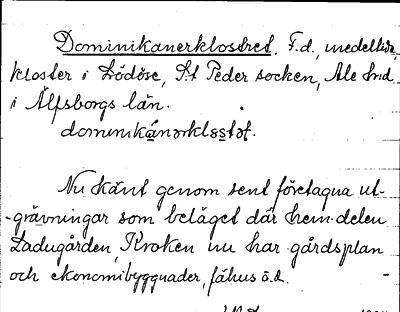 Dominikanerklostret. F.d. medeltida
kloster i Lödöse, S:t Peder socken, Ale hrd
i Älfsborgs län.
dominikánərklɔstət.
Nu känt genom sent företagna ut-
-grävningar som beläget där hemdelen
Ladugården, Kroken nu har gårdsplan
och ekonomibyggnader, fähus o.d.